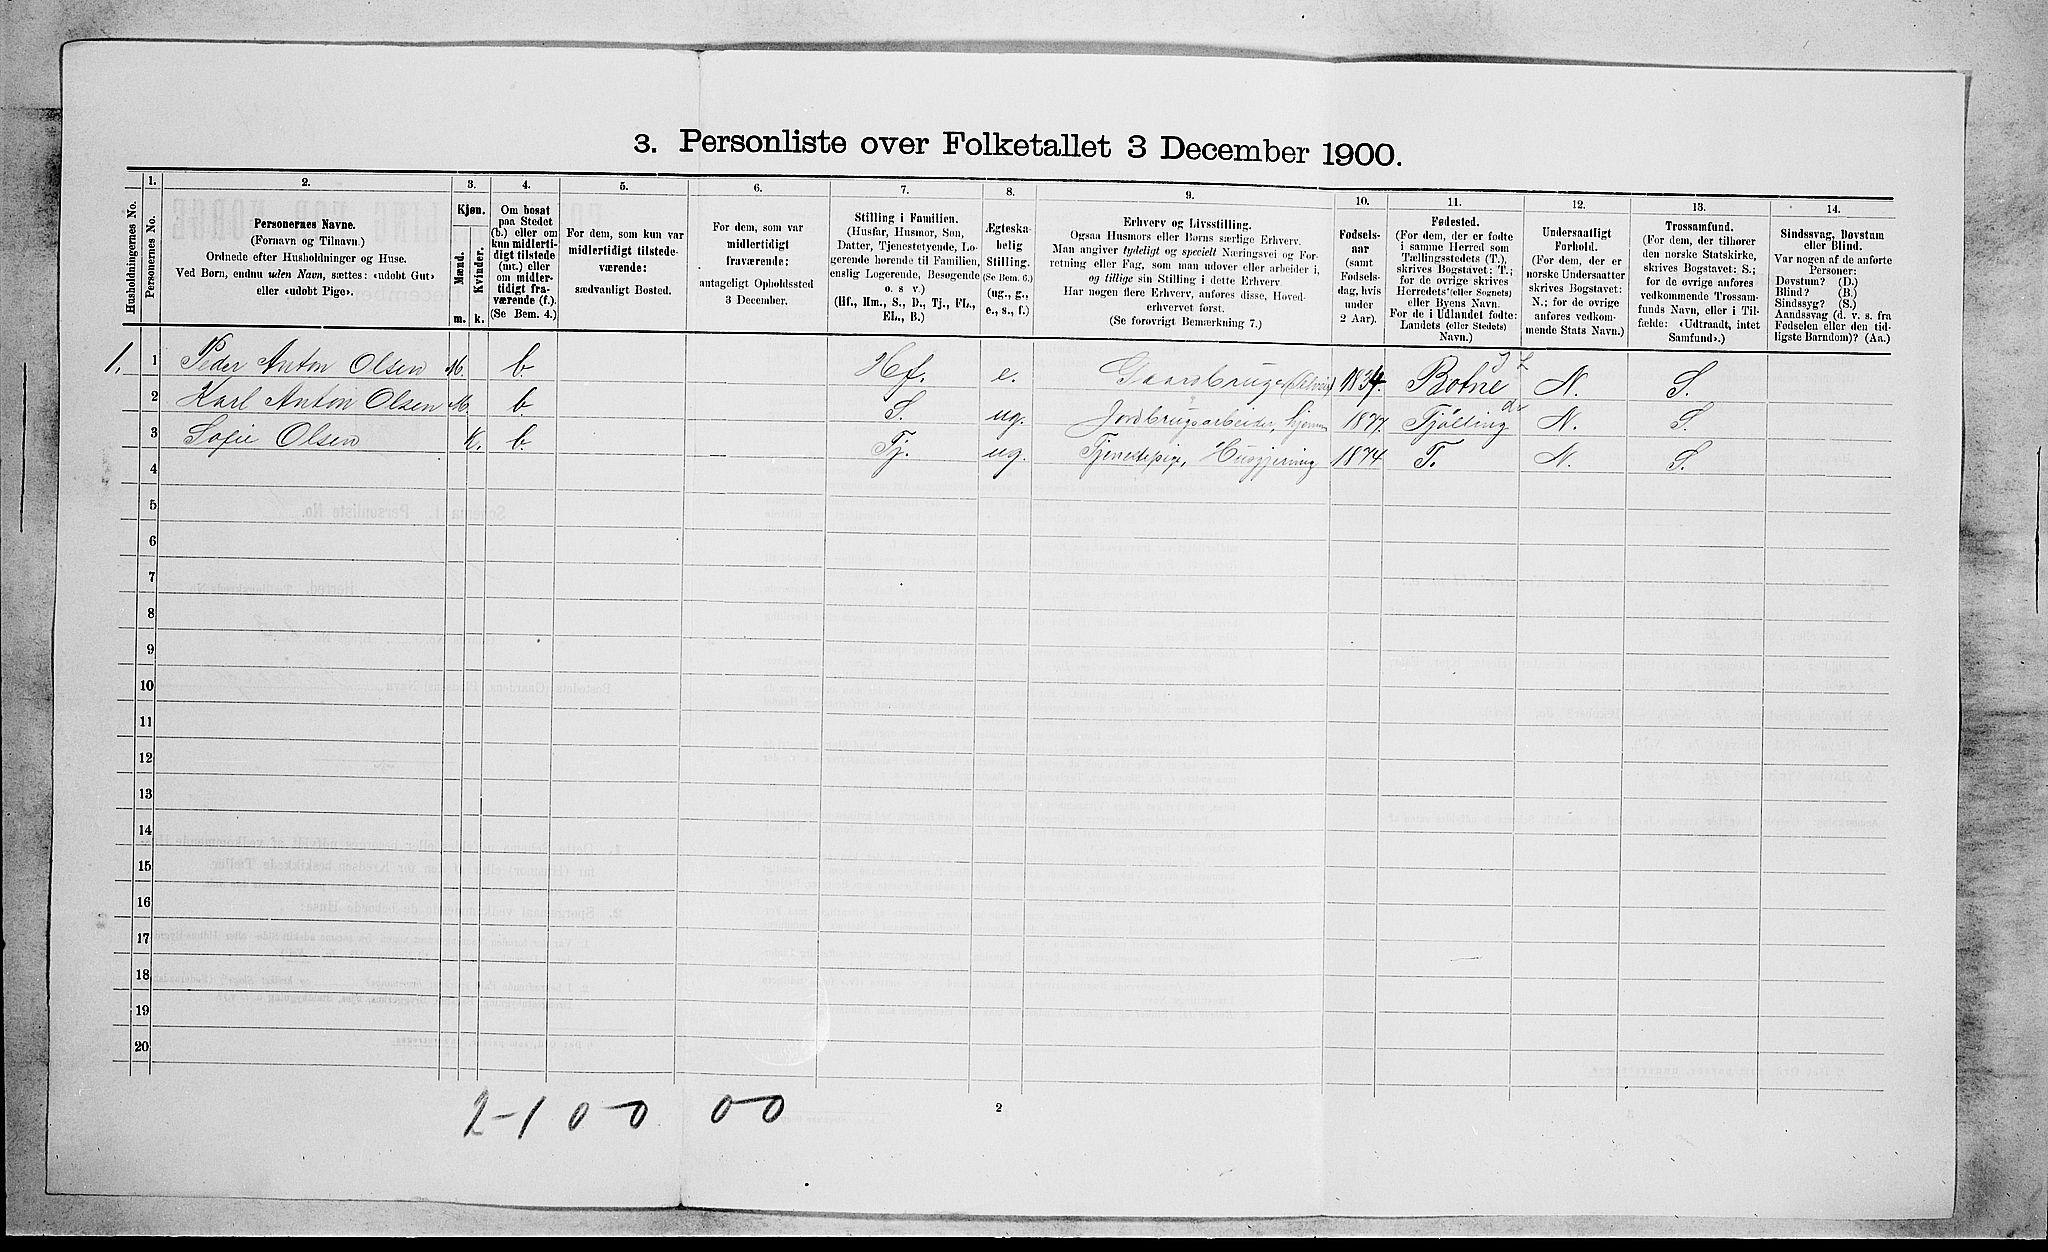 3. Personliste over Folketallet 3 December 1900.
Husholdningernes No.
1.
Personernes No.
2.
Personernes Navne.
(Fornavn og Tilnavn.)
Ordnede efter Husholdninger og Huse.
Ved Børn, endnu uden Navn, sættes: «udobt Gut»
eller «udobt Pige».
3.
Kjøn.
Mænd.
Kvinder.
m. k.
4.
Om bosat
paa Stedet
(b.) eller om
kun midlerti-
digt tilstede
(mt.) eller
om midler-
tidigt fra-
værende (f.).
(Se Bem. 4.)
5.
For dem, som kun var
midlertidigt tilstede-
værende:
sædvanligt Bosted.
6.
For dem, som var
midlertidigt
fraværende:
antageligt Opholdssted
3 December.
7.
Stilling i Familien.
(Husfar, Husmor, Søn,
Datter, Tjenestetyende, Lo-
gerende hørende til Familien,
enslig Logerende, Besøgende
o. s v.)
(Hf., Hm., S., D., Tj., FL.,
EL., B.)
8.
Ægteska-
belig
Stilling.
(Se Bem. 6.)
(ug., g.,
e., s., f.)
9.
Erhverv og Livsstilling.
Ogsaa Husmors eller Børns særlige Erhverv.
Man angiver tydeligt og specielt Næringsvei og For-
retning eller Fag, som man udøver eller arbeider i,
og tillige sin Stilling i dette Erhverv.
Har nogen flere Erhverv, anføres disse, Hoved-
erhvervet først.
(Se forøvrigt Bemærkning 7.)
10.
Fødsels-
aar
(samt
Fødsels-
dag, hvis
under
2 Aar).
11.
Fødested.
(For dem, der er fødte
i samme Herred som
Tællingsstedets (T.),
skrives Bogstavet: T.;
for de øvrige skrives
Herredets (eller Sognets)
eller Byens Navn.
For de i Udlandet fødte:
Landets (eller Stedets)
Navn.)
12.
Undersaatligt
Forhold.
(For dem, der er
norske Undersaatter
skrives Bogstavet:
N.; for de øvrige
anføres vedkom-
mende Stats Navn.)
13.
Trossamfund.
(For dem, der tilhører
den norske Statskirke,
skrives Bogstavet: S.;
for de øvrige anføres
vedkommende Trossam-
funds Navn, eller i Til-
fælde: «Udtraadt, intet
Samfund».)
14.
Sindssvag, Døvstum
eller Blind.
Var nogen af de anførte
Personer:
Døvstum? (D.)
Blind? (B.)
Sindssyg? (S.)
Aandssvag (d. v. s. fra
Fødselen eller den tid-
ligste Barndom)? (Aa.)
1. 1 Peder Anton Olsen M. b. Hf. e. Gaardbruger (Selveier) 1834. Botne N. S.
2 Karl Anton Olsen M. b. S. ug. Jordbrugsarbeider, hjemme 1877 Tjølling N. S.
3 Sofie Olsen K. b. Tj. ug. Tjenestepige, Husgjerning 1874 T. N. S.
4
5
6
7
8
9
10
11
12
13
14
15
16
17
18
19
20
2-1 0-0 0-0
2